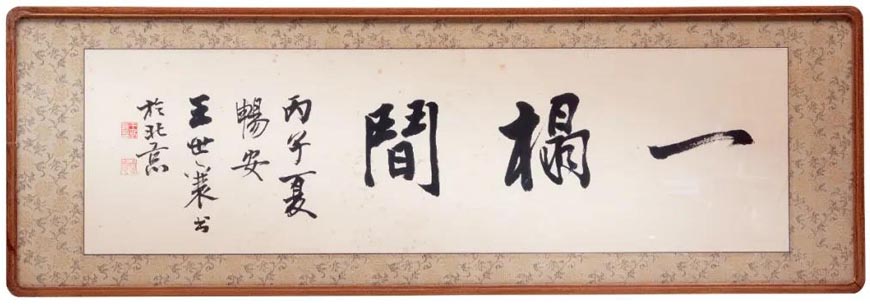 一榻間
丙子夏
暢安
王世襄书
於北京